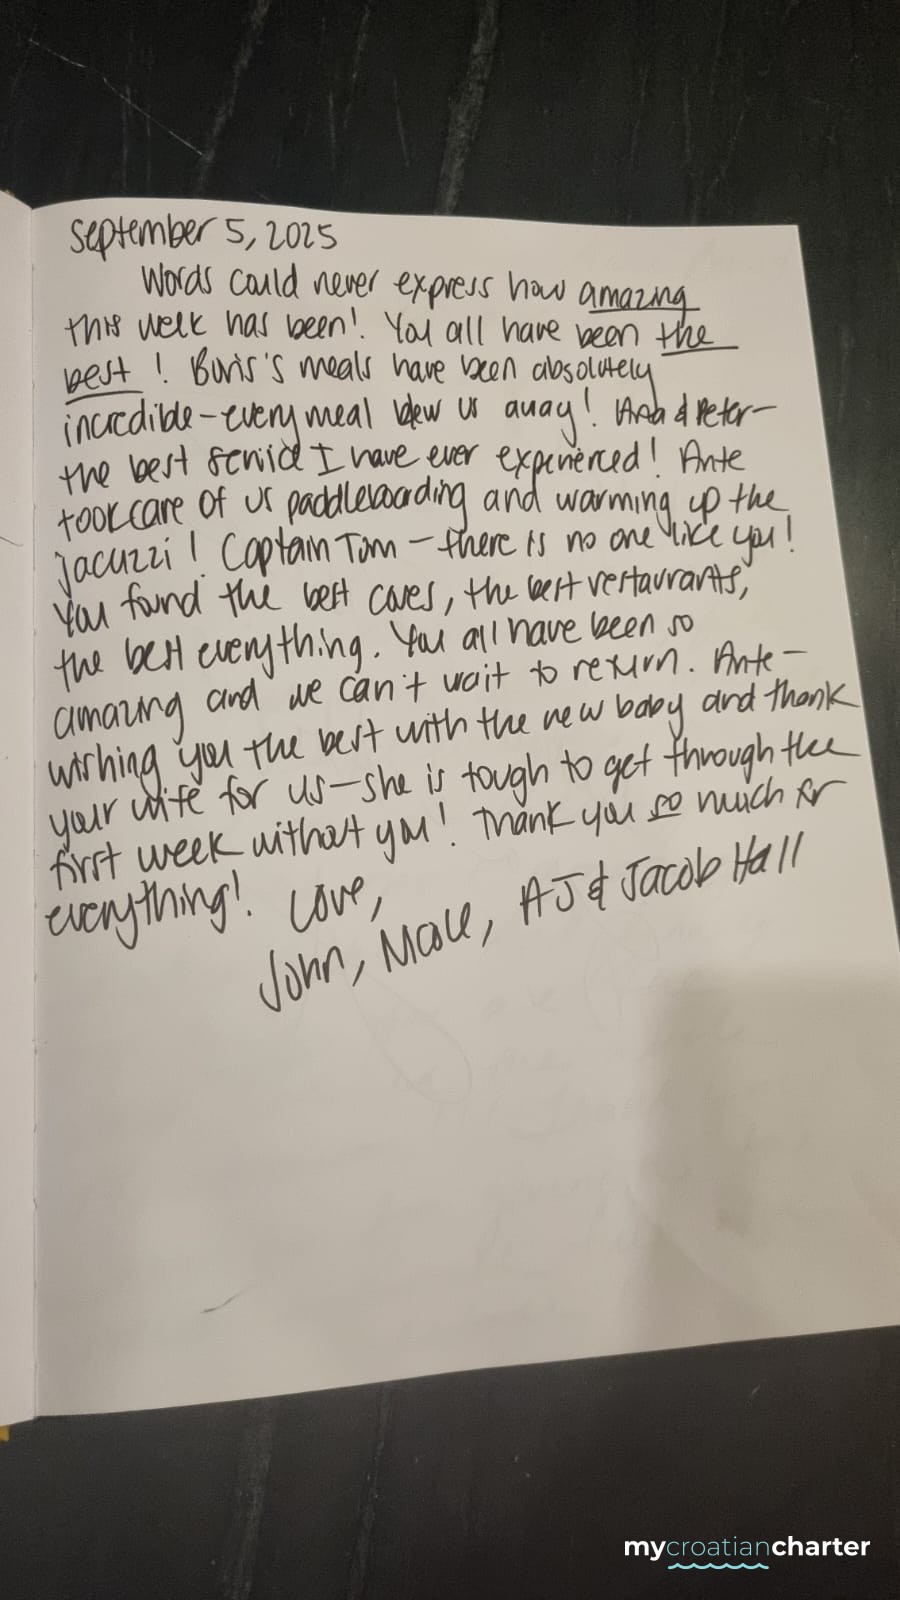 September 5, 2025
Words could never express how amazing
this week has been! You all have been the
best! Boris's meals have been absolutely
incredible - every meal blew us away! Ana & Peter -
the best service I have ever experienced! Ante
took care of us paddleboarding and warming up the
jacuzzi! Captain Tom - there is no one like you!
You found the best coves, the best restaurants,
the best everything. You all have been so
amazing and we can't wait to return. Ante -
wishing you the best with the new baby and thank
your wife for us - she is tough to get through the
first week without you! Thank you so much for
everything! Love,
John, Nicole, AJ & Jacob Hall
mycroatiancharter